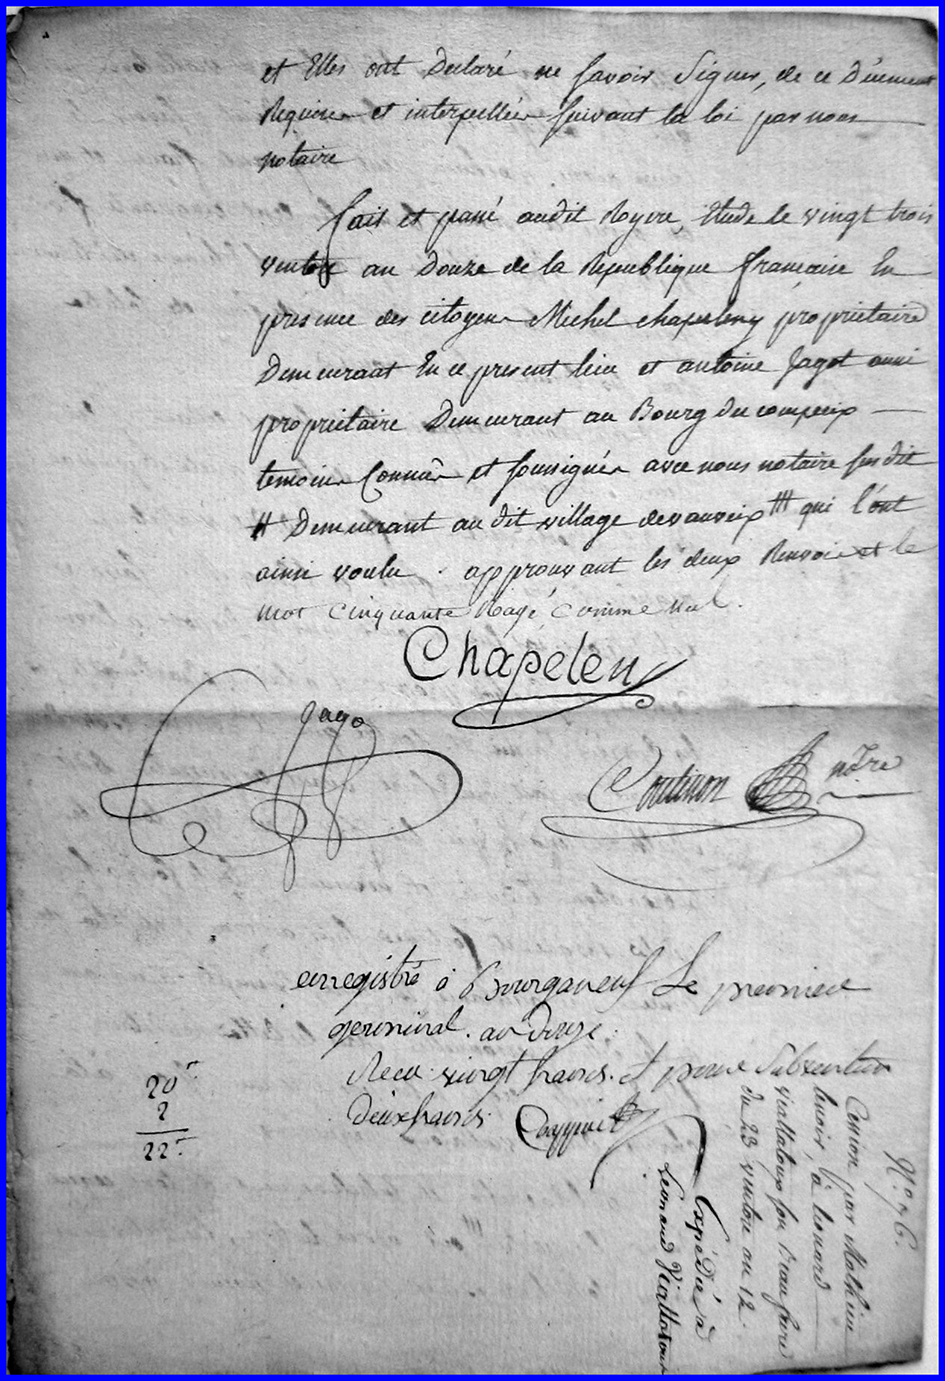 et Elles ont Declaré ne Savoir Signer, de ce Duement
Requises et interpellées Suivant la loi par nous
notaire
fait et passé audit Royere, Etude le vingt trois
ventose an Douze de la Republique francaise En
presence des citoyens Michel chapeleny proprietaire
Demeurant En ce present lieu et antoine Jagot aussi
proprietaire Demeurant au Bourg du compeix
temoins Connus et soussignés avec nous notaire susdit
# Demeurant au dit village devauveix ||| qui l'ont
ainsi voulu. approuvant les deux Renvois et le
mot cinquante Rayé, comme nul.
Chapeleny
Jago
Coutisson ntre
enregistré à Bourganeuf Le premier
germinal. an Douze.
Recu vingt francs. et pour Subvention
deux francs
20
2
22
N.o 96.
Cession par Mathieu
lenoir, à leonard
viallatoux son Beau frere
du 23 ventose an 12.
Expédié à
Leonard Viallatoux